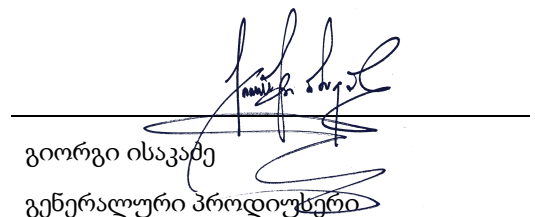 გიორგი ისაკაძე
გენერალური პროდიუსერი